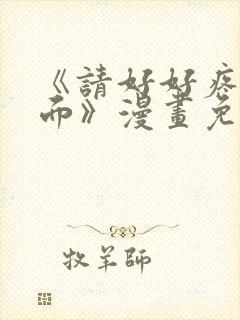 《請好好疼
而》漫畫免
牧羊師